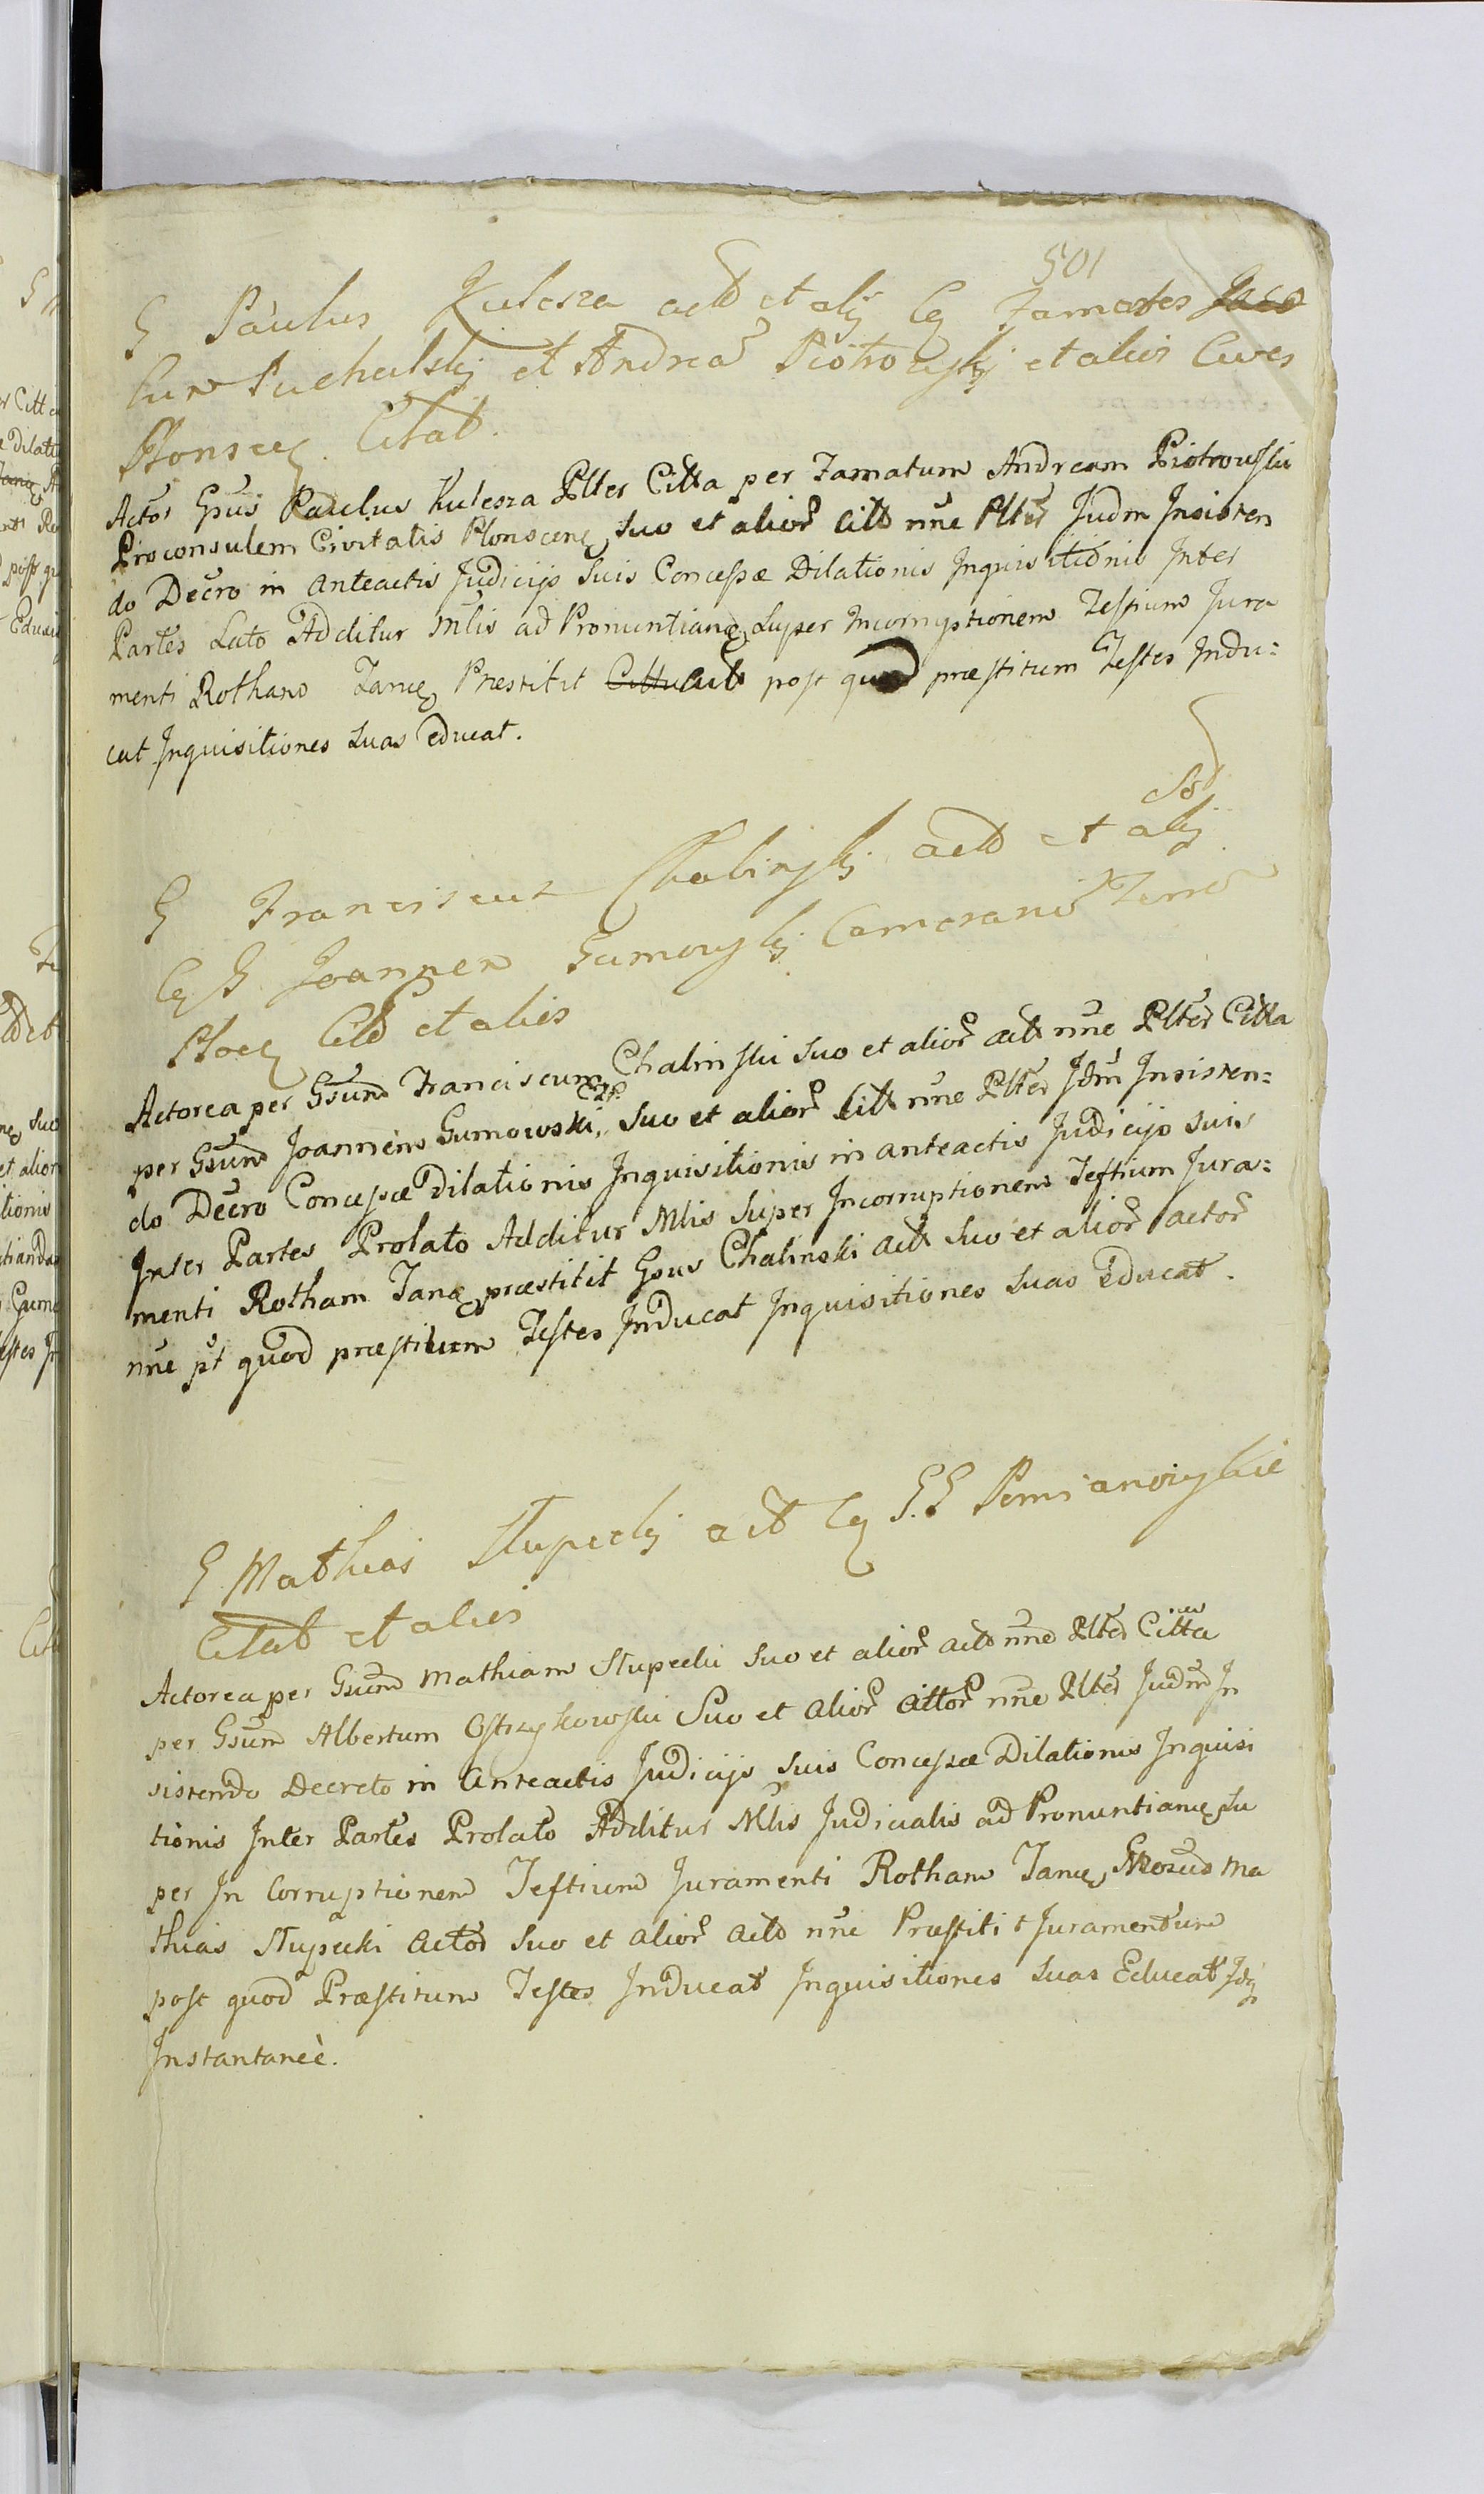 501
G Paulus Kulesza actō et alij Cq Famates
Puchalskj et Andreā Piotrowskj et alios Cives
Plonscq Citat.
Actor Gsus Paulus Kulesza Plter Citta per Famatum Andream Piotrowski
Proconsulem Civitatis Plonscenq Suo et alior Citt nne Plter Judm Insisten
do Decro in anteactis Judicijs Suis Concessæ Dilationis Inquisitionis Inter
Partes Lato Additur Mlis ad Pronuntianq Super Incorruptionem Testium Jura
menti Rotham Tanq Præstitit act post quod præstitum Testes Indu:
cat Inquisitiones Suas educat.
G Franciscus Chalinskj actō et alij
Cq G Joannem Gumowskj Camerariū Terrœ
Plocq Citō et alios
Actorea per Gsum Franciscum Chalinski Suo et alior act nne Plter Citta
per Gsum Joannem Gumowski, Suo et alior Citt nne Plter Jdm Insisten:
do Decro Concessæ Dilationis Inquisitionis in anteactis Judicijs Suis
Inter Partes Prolato Additur Mlis Super Incorruptionem Testium Jura:
menti Rotham Tanq præstitit Gsus Chalinski act Suo et alior actor
nne pt quod præstitum Testes Inducat Inquisitiones Suas Educat.
G Mathias Slupeckj act Cq G.G Pomianowskie
Citat et alios
Actorea per Gsum Mathiam Slupecki Suo et alior act nne Plter Citta
per Gsum Albertum Ostrzykowski Suo et alior Cittor nne Plter Judm In
sistendo Decreto in Anteactis Judicijs Suis Concessæ Dilationis Inquisi
tionis Inter Partes Prolato Additur Mlis Judicialis ad Pronuntianq Su
per In Corruptionem Testium Juramenti Rotham Tanq Gsus Ma
thias Slupecki Actor Suo et alior act nne Præstitit Juramentum
post quod Præstitum Testes Inducat Inquisitiones Suas Educat Idq
Instantaneè.